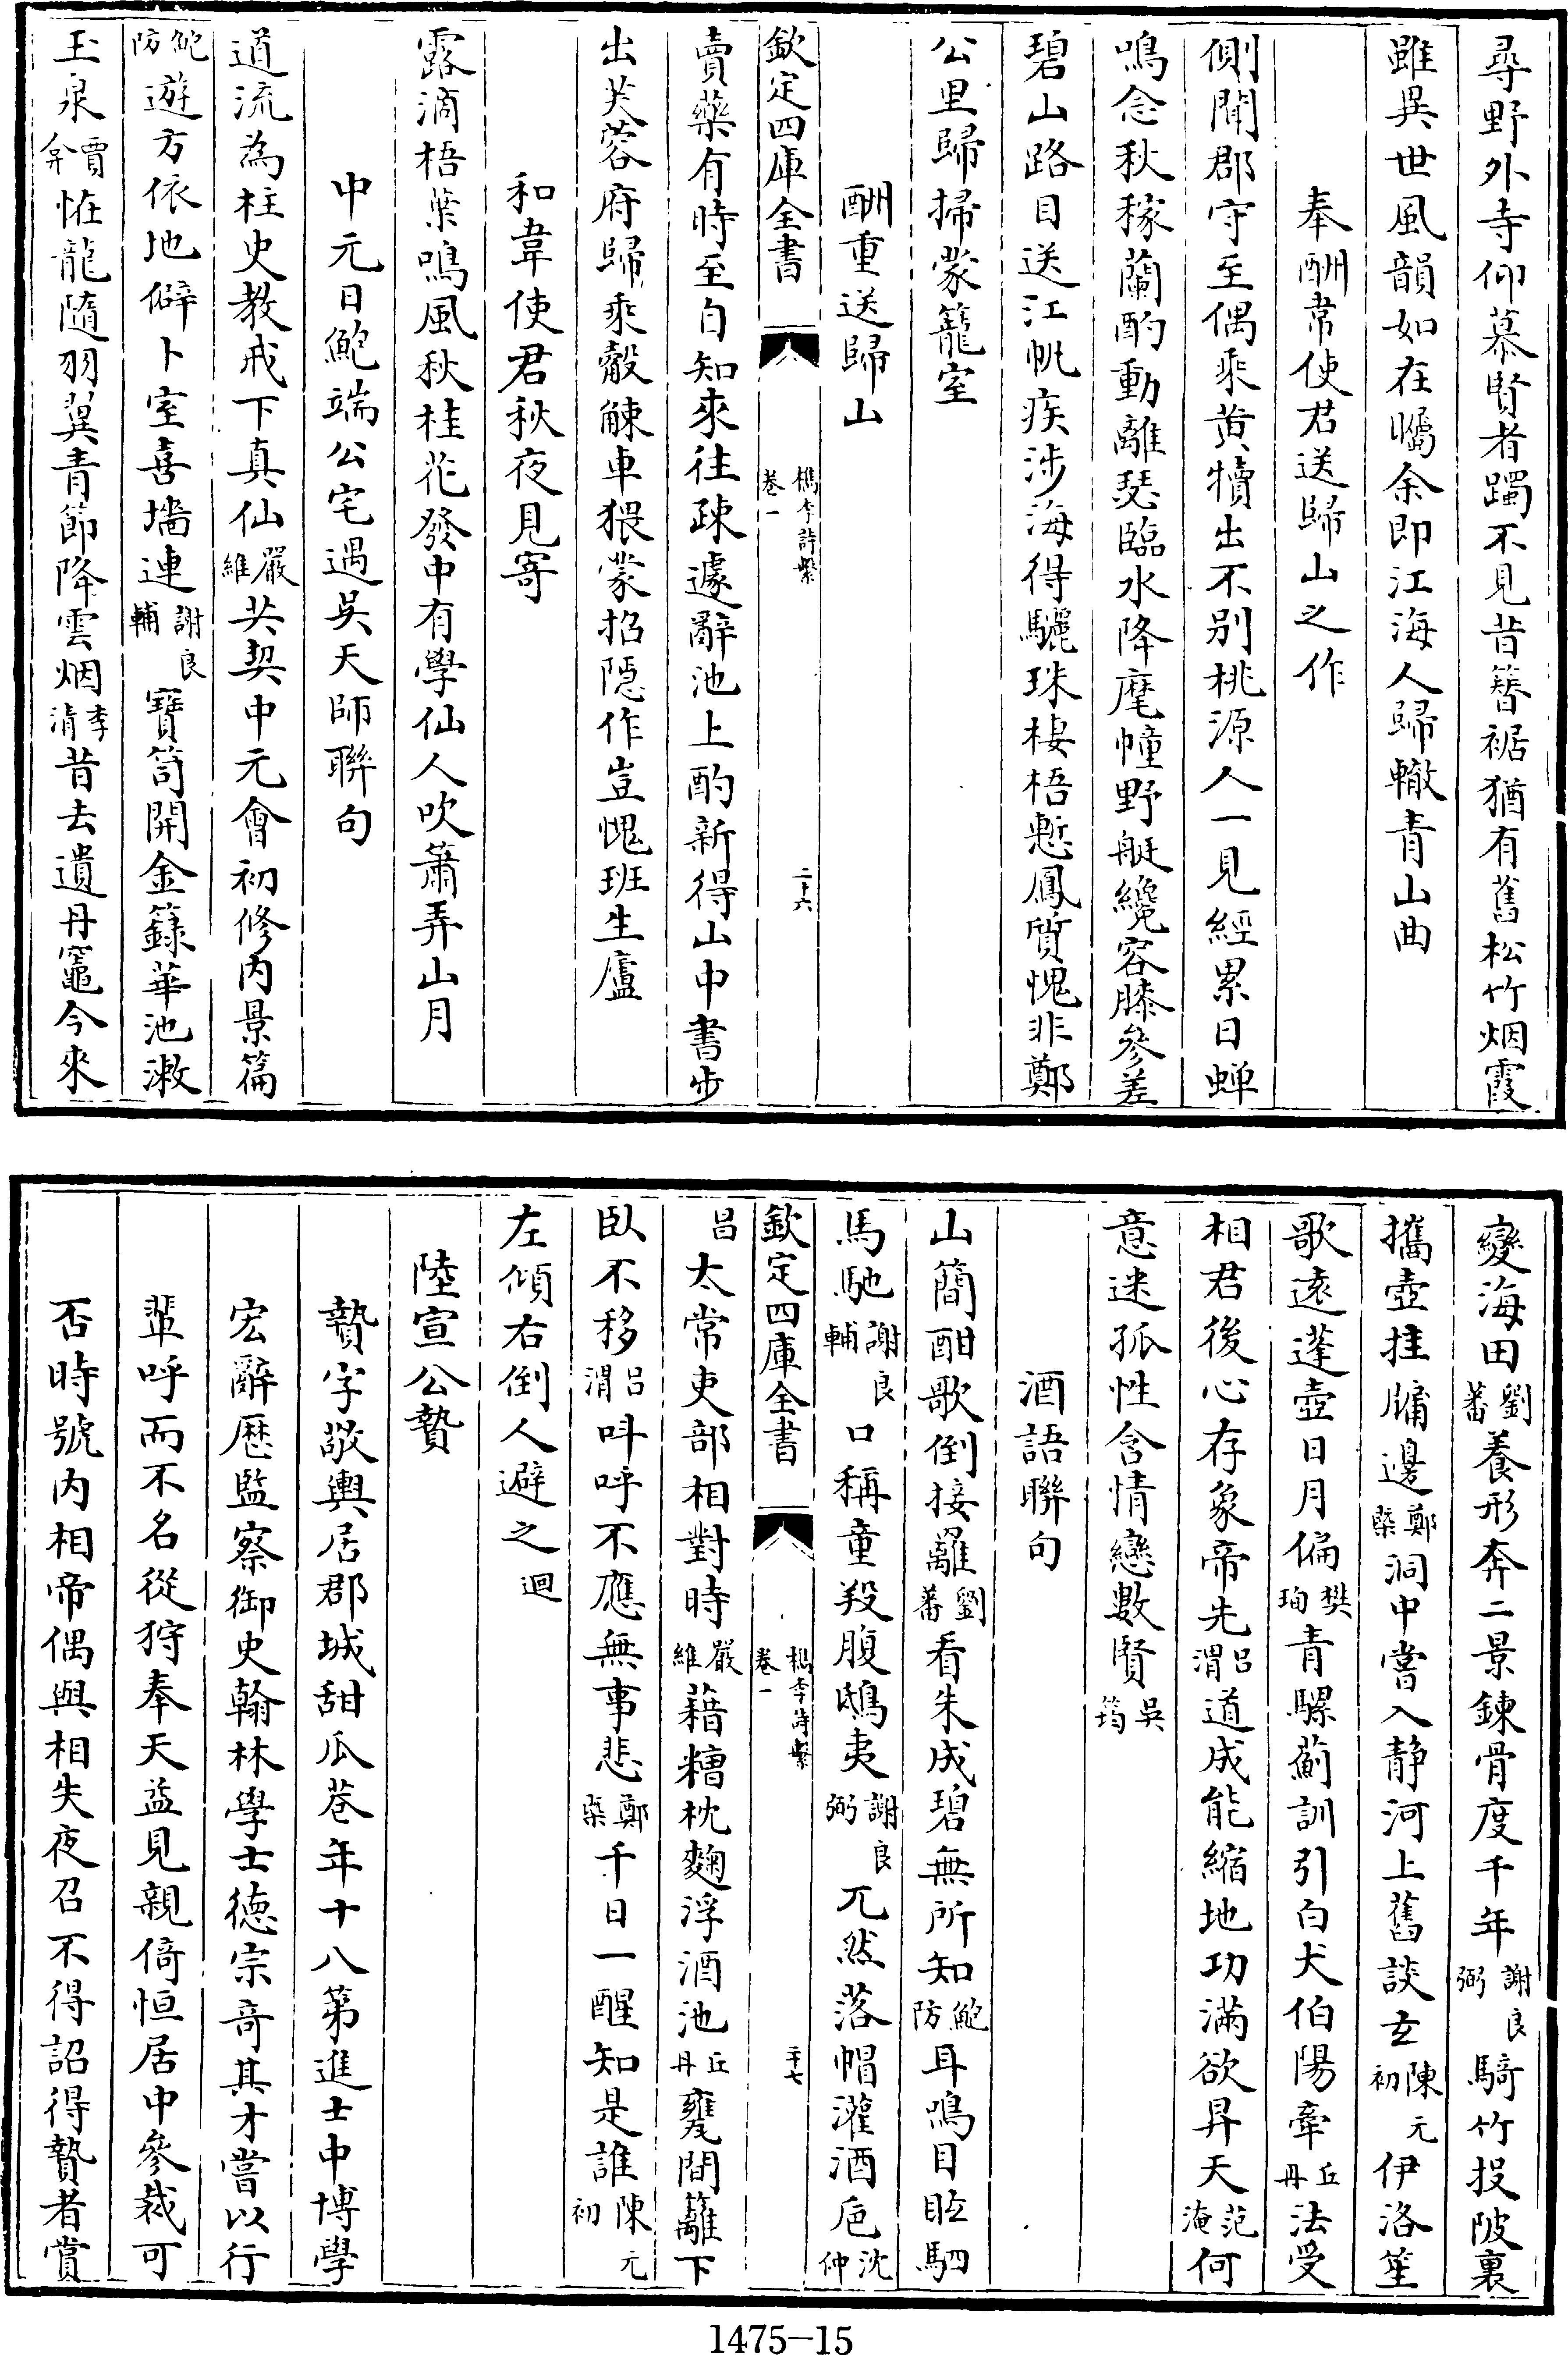 尋野外寺仰慕賢者躅不見昔簪裾猶有舊松竹烟霞
雖異世風韻如在矚余即江海人歸轍青山曲
奉酬常使君送歸山之作
側聞郡守至偶乘黄犢出不别桃源人一見經累日蟬
鳴念秋稼蘭酌動離瑟臨水降麾幢野艇纔容膝參差
碧山路目送江帆疾涉海得驪珠棲梧慙鳳質愧非鄭
公里歸掃蒙籠室
酬重送歸山
欽定四庫全書
檇李詩繫
卷一
二十六
賣藥有時至自知來往疎遽辭池上酌新得山中書步
出芙蓉府歸乘觳觫車猥蒙招隠作豈愧班生廬
和韋使君秋夜見寄
露滴梧葉鳴風秋桂花發中有學仙人吹簫弄山月
中元日鮑端公宅遇吳天師聯句
道流為柱史教戒下真仙嚴維共契中元會初修内景篇
鮑防遊方依地僻卜室喜墻連謝良輔寶笥開金籙華池漱
玉泉賈弇怪龍隨羽翼青節降雲烟李清昔去遺丹竈今來
變海田劉蕃養形奔二景鍊骨度千年謝良弼騎竹投陂裏
攜壺挂牖邊鄭槩洞中嘗入静河上舊談玄陳元初伊洛笙
歌遠蓬壺日月偏樊珣青騾薊訓引白犬伯陽牽丘丹法受
相君後心存象帝先吕渭道成能縮地功滿欲昇天范淹何
意迷孤性含情戀數賢吳筠
酒語聯句
山簡酣歌倒接䍦劉蕃看朱成碧無所知鮑防耳鳴目眩駟
馬馳謝良輔口稱童羖腹鴟夷謝良弼兀然落帽灌酒巵沈仲
欽定四庫全書
檇李詩繫
卷一
二十七
昌太常吏部相對時嚴維藉糟枕麴浮酒池丘丹甕間籬下
臥不移吕渭呌呼不應無事悲鄭槩千日一醒知是誰陳元初
左傾右倒人避之迴
陸宣公贄
贄字敬輿居郡城甜瓜巷年十八第進士中博學
宏辭歴監察御史翰林學士德宗竒其才嘗以行
輩呼而不名從狩奉天益見親倚恒居中參裁可
否時號内相帝偶與相失夜召不得詔得贄者賞
1475—15